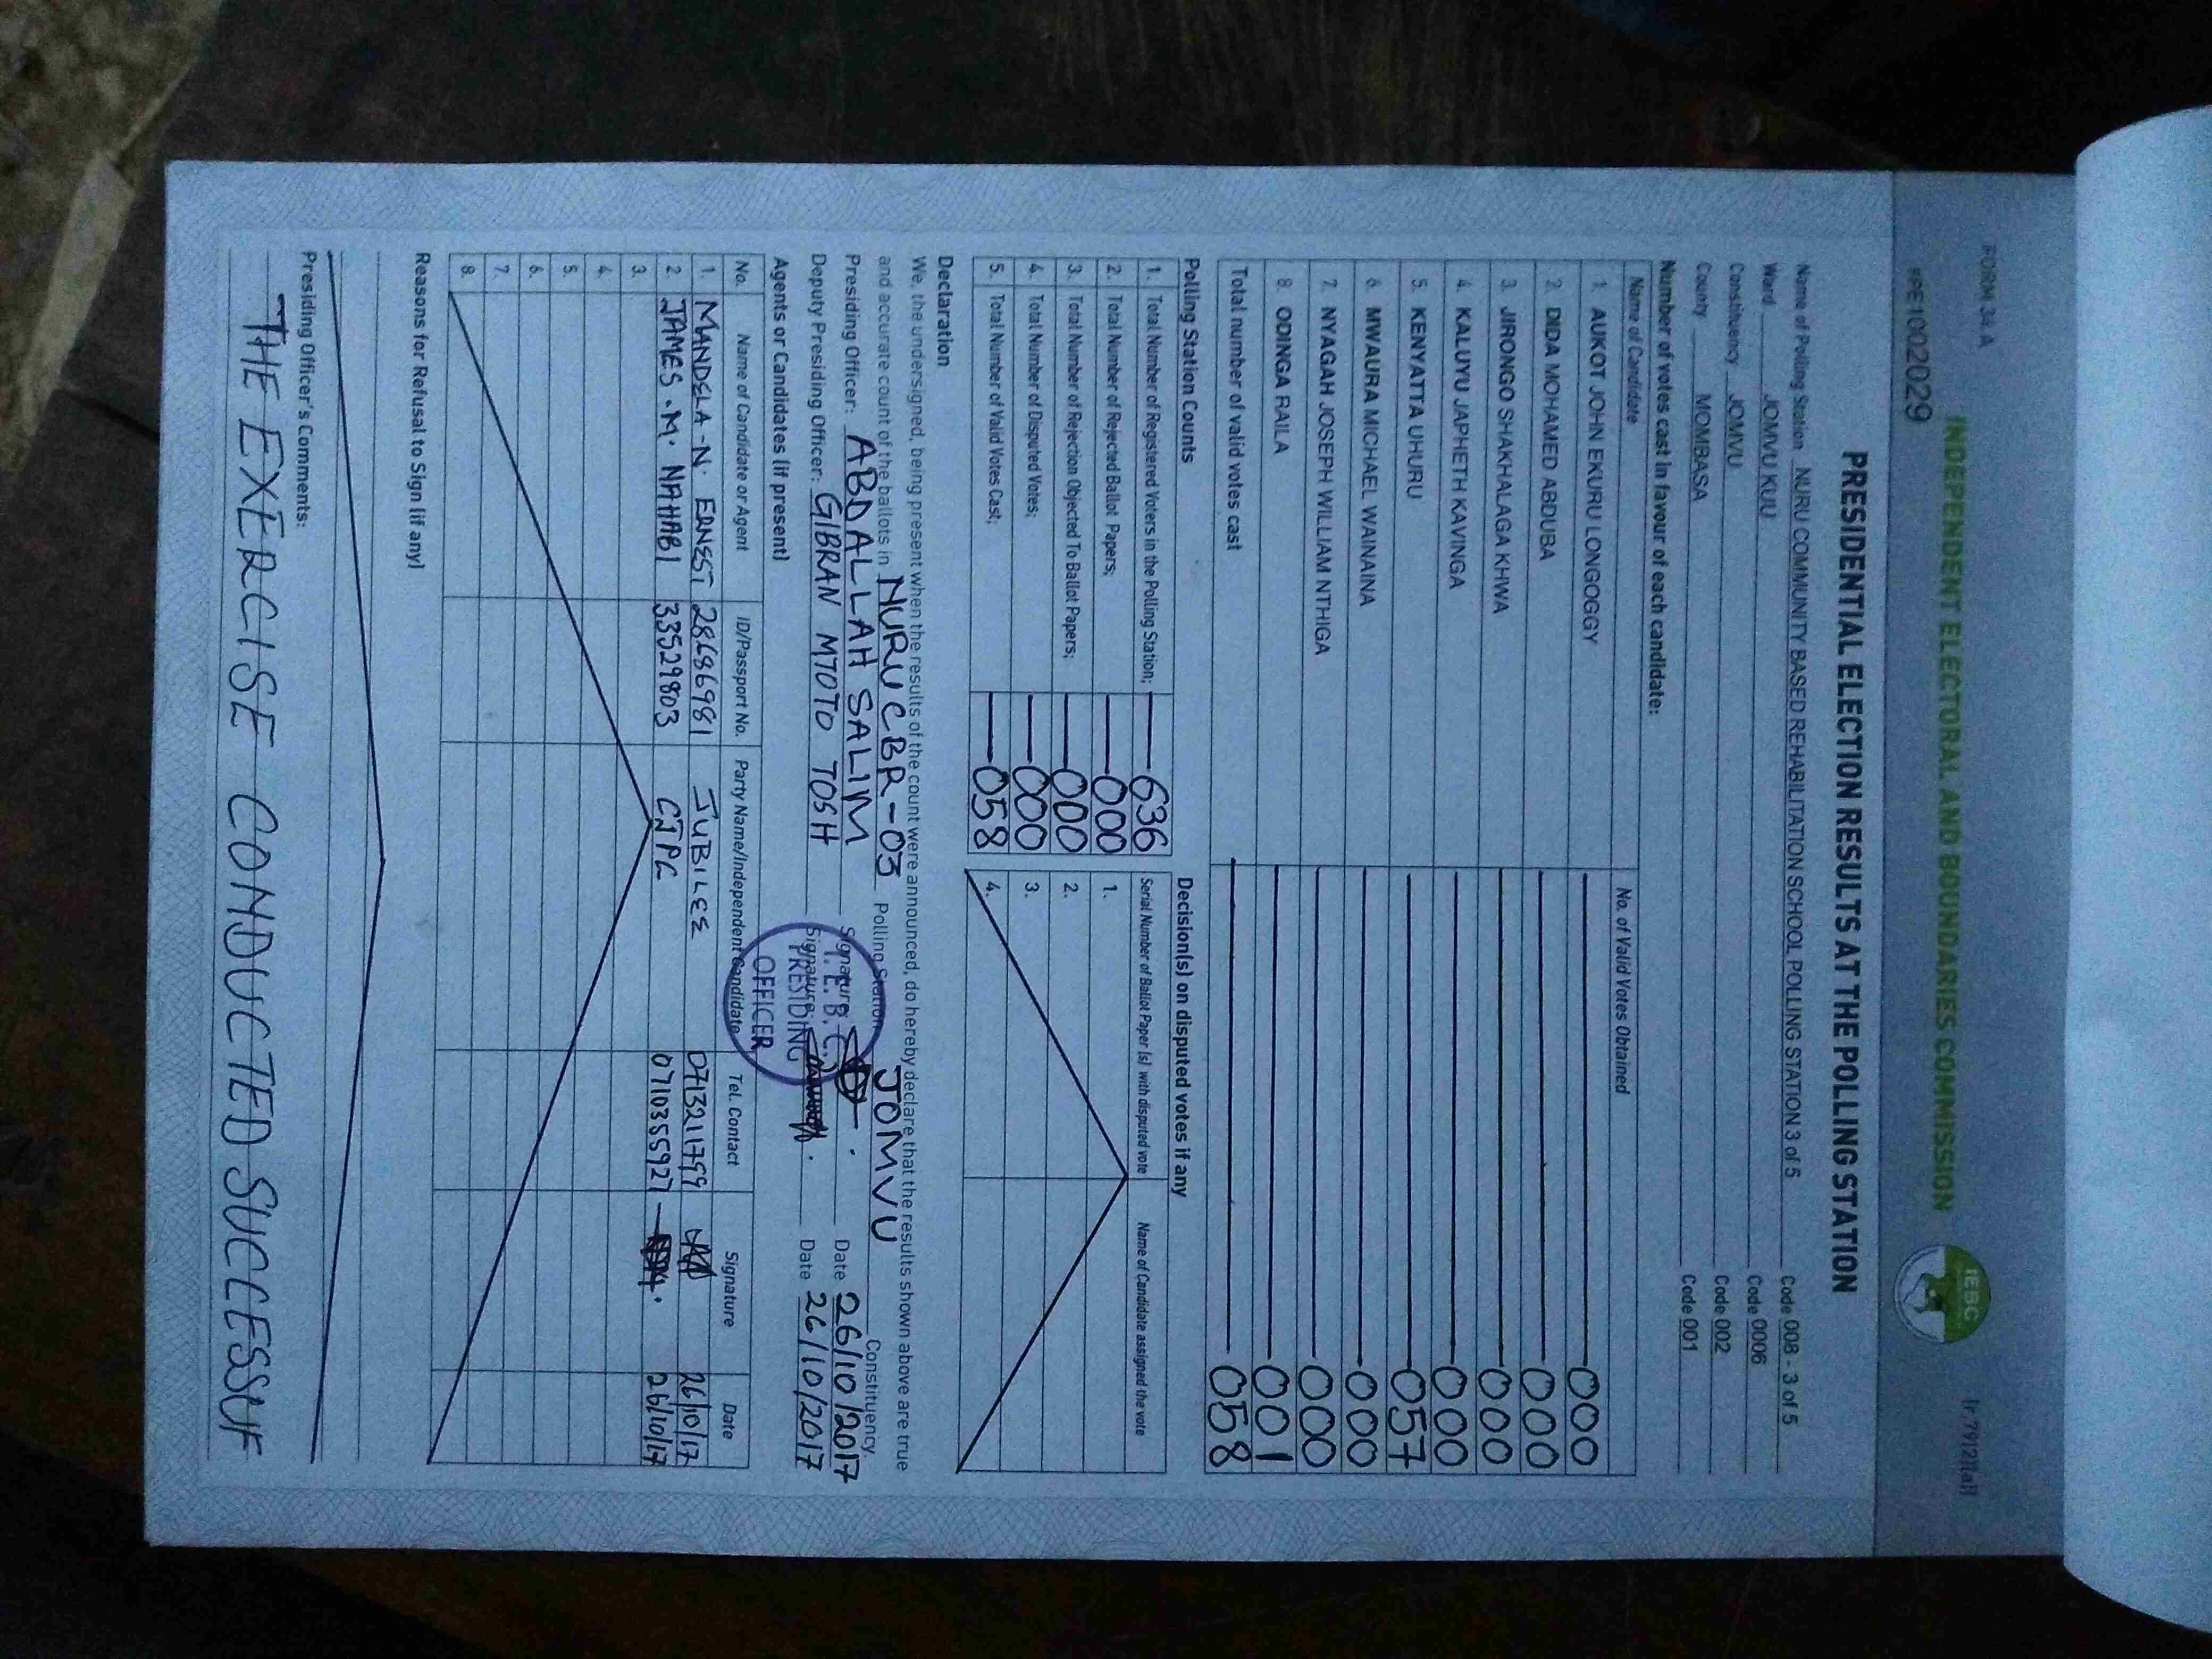 FORM 34 A
INDEPENDENT ELECTORAL AND BOUNDARIES COMMISSION
IEBC
PRESIDENTIAL ELECTION RESULTS AT THE POLLING STATION
Name of Polling Station NURU COMMUNITY BASED REHABILITATION SCHOOL POLLING STATION 3 of 5 Code 008 - 3 of 5
Ward JOMVU KUU Code 0006
Constituency JOMVU Code 002
County MOMBASA Code 001
Number of votes cast in favour of each candidate:
Name of Candidate No. of Valid Votes Obtained
1. AUKOT JOHN EKURU LONGOGGY 000
2. DIDA MOHAMED ABDUBA 000
3. JIRONGO SHAKHALAGA KHWA 000
4. KALUYU JAPHETH KAVINGA 000
5. KENYATTA UHURU 057
6. MWAURA MICHAEL WAINAINA 000
7. NYAGAH JOSEPH WILLIAM NTHIGA 000
8 ODINGA RAILA 001
Total number of valid votes cast 058
Polling Station Counts
1. Total Number of Registered Voters in the Polling Station; 636
2. Total Number of Rejected Ballot Papers; 000
3. Total Number of Rejection Objected To Ballot Papers; 000
4. Total Number of Disputed Votes; 000
5. Total Number of Valid Votes Cast; 058
Decision(s) on disputed votes if any
Serial Number of Ballot Paper (s) with disputed vote Name of Candidate assigned the vote
1.
2.
3.
4.
Declaration
We, the undersigned, being present when the results of the count were announced, do hereby declare that the results shown above are true
and accurate count of the ballots in NURU CBR-03 Polling Station JOMVU Constituency.
Presiding Officer: ABDALLAH SALIM Signature Date 26/10/2017
Deputy Presiding Officer: GIBRAN MTOTO TOSH Signature: Date 26/10/2017
I.E.B.C.
PRESIDING
OFFICER
Agents or Candidates (if present)
No. Name of Candidate or Agent ID/Passport No. Party Name/Independent Candidate Tel. Contact Signature Date
1. MANDELA .N. ERNEST 28686981 JUBILEE 0713211799 26/10/17
2. JAMES .M. NAHABI 33529803 CJPC 0710355927 26/10/17
3.
4.
5.
6.
7.
8.
Reasons for Refusal to Sign (if any)
Presiding Officer's Comments:
THE EXERCISE CONDUCTED SUCCESSUF